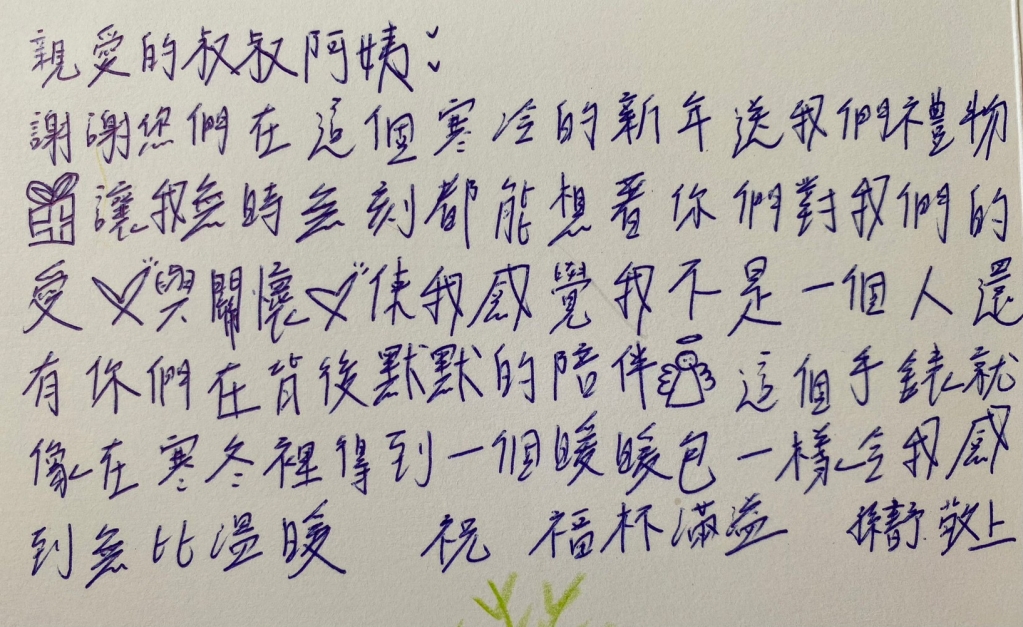 親愛的叔叔阿姨:
謝謝您們在這個寒冷的新年送我們禮物
讓我無時無刻都能想著你們對我們的
愛與關懷使我感覺我不是一個人還
有你們在背後默默的陪伴這個手錶就
像在寒冬裡得到一個暖暖包一樣令我感
到無比溫暖 祝 福杯滿溢 敬上